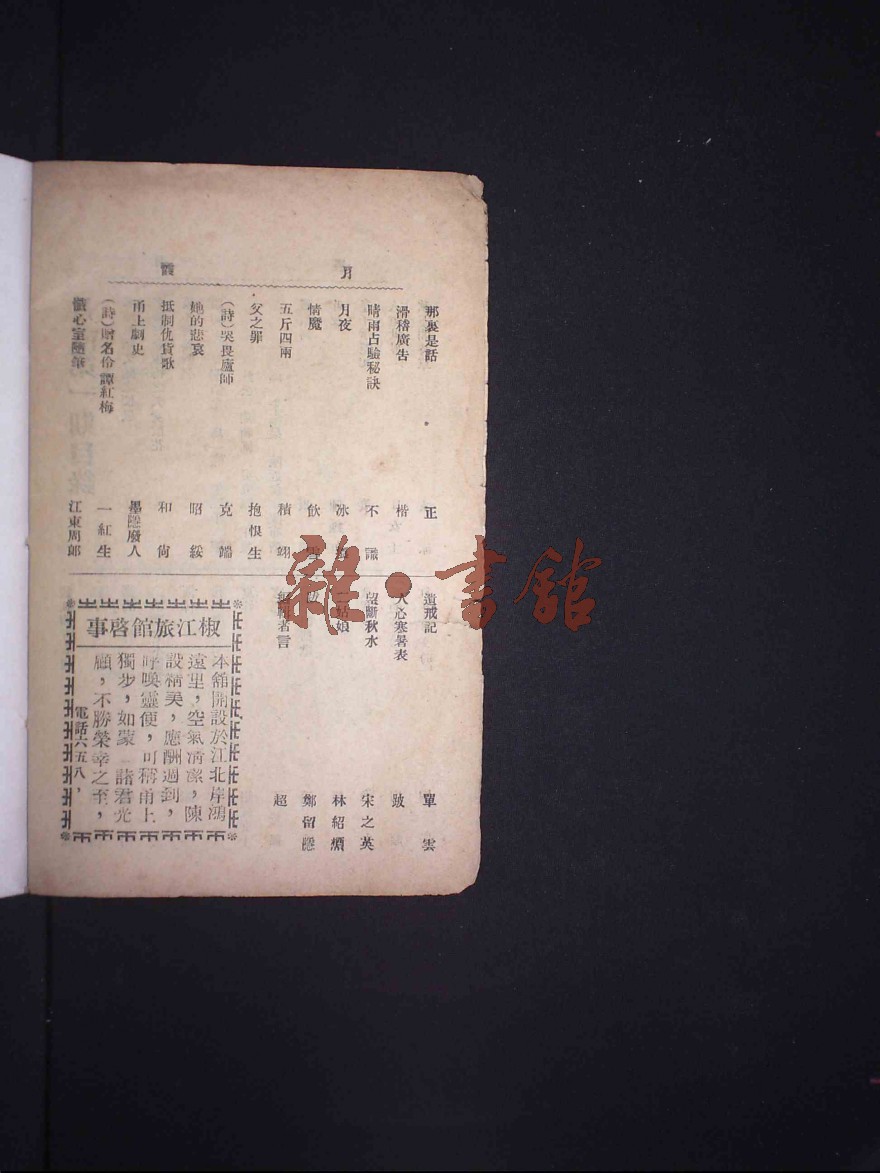 月霞
那裏是話 正
滑稽廣告 楷
晴雨占驗秘訣 不識
月夜 冰
情魔 飲
五斤四兩 積翊
父之罪 抱恨生
(詩)哭畏廬師 克端
她的悲哀 昭綏
抵制仇貨歌 和尙
甬上劇史 墨隱廢人
(詩)贈名伶譚紅梅 一紅生
懺心室隨筆 江東周郞
遺戒記 單雲
人心寒暑表 跛
望斷秋水 宋之英
姑娘 林紹
鄭留隱
編輯者言 超
椒江旅館啓事
本館開設於江北岸鴻
遠里，空氣淸潔，陳
設精美，應酬週到，
呼喚靈便，可稱甬上
獨步，如蒙 諸君光
顧，不勝榮幸之至，
電話六五八，
雜·書館